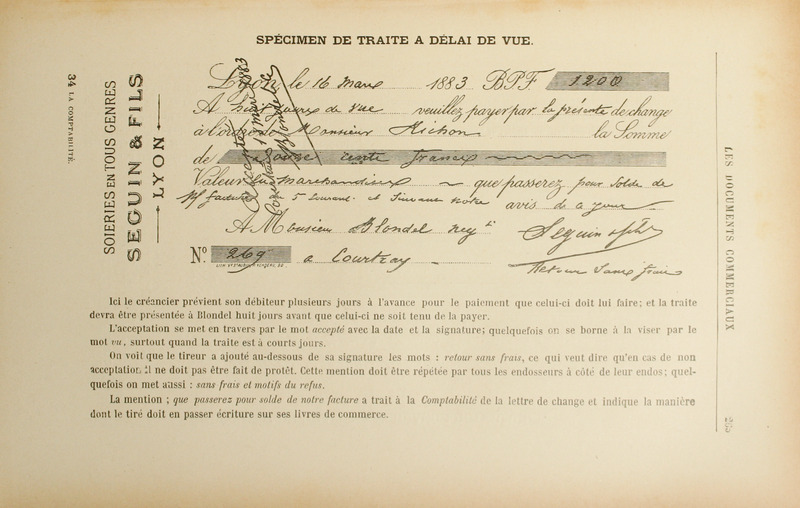 SPÉCIMEN DE TRAITE A DÉLAI DE VUE.
34 LA COMPTABILITÉ.
SOIERIES EN TOUS GENRES
SEGUIN & FILS
LYON
Lyon, le 16 Mars 1883 B.P.F. 1200
A huit jours de vue veuillez payer par la présente de change
à l'ordre de Monsieur Richon la Somme
de Douze cents francs
Valeur en Marchandises que passerez pour solde de
N/ facture du 5 Courant et Suivant notre avis de ce jour
A Monsieur Blondel Seguin & fils
Nº 269 a Courtray Retour Sans frais
Accepté
Courtrai 17 mars 1883
Blondel
Ici le créancier prévient son débiteur plusieurs jours à l'avance pour le paiement que celui-ci doit lui faire; et la traite
devra être présentée à Blondel huit jours avant que celui-ci ne soit tenu de la payer.
L'acceptation se met en travers par le mot accepté avec la date et la signature; quelquefois on se borne à la viser par le
mot vu, surtout quand la traite est à courts jours.
On voit que le tireur a ajouté au-dessous de sa signature les mots : retour sans frais, ce qui veut dire qu'en cas de non
acceptation il ne doit pas être fait de protêt. Cette mention doit être répétée par tous les endosseurs à côté de leur endos; quel-
quefois on met aussi : sans frais et motifs du refus.
La mention ; que passerez pour solde de notre facture a trait à la Comptabilité de la lettre de change et indique la manière
dont le tiré doit en passer écriture sur ses livres de commerce.
LES DOCUMENTS COMMERCIAUX
265